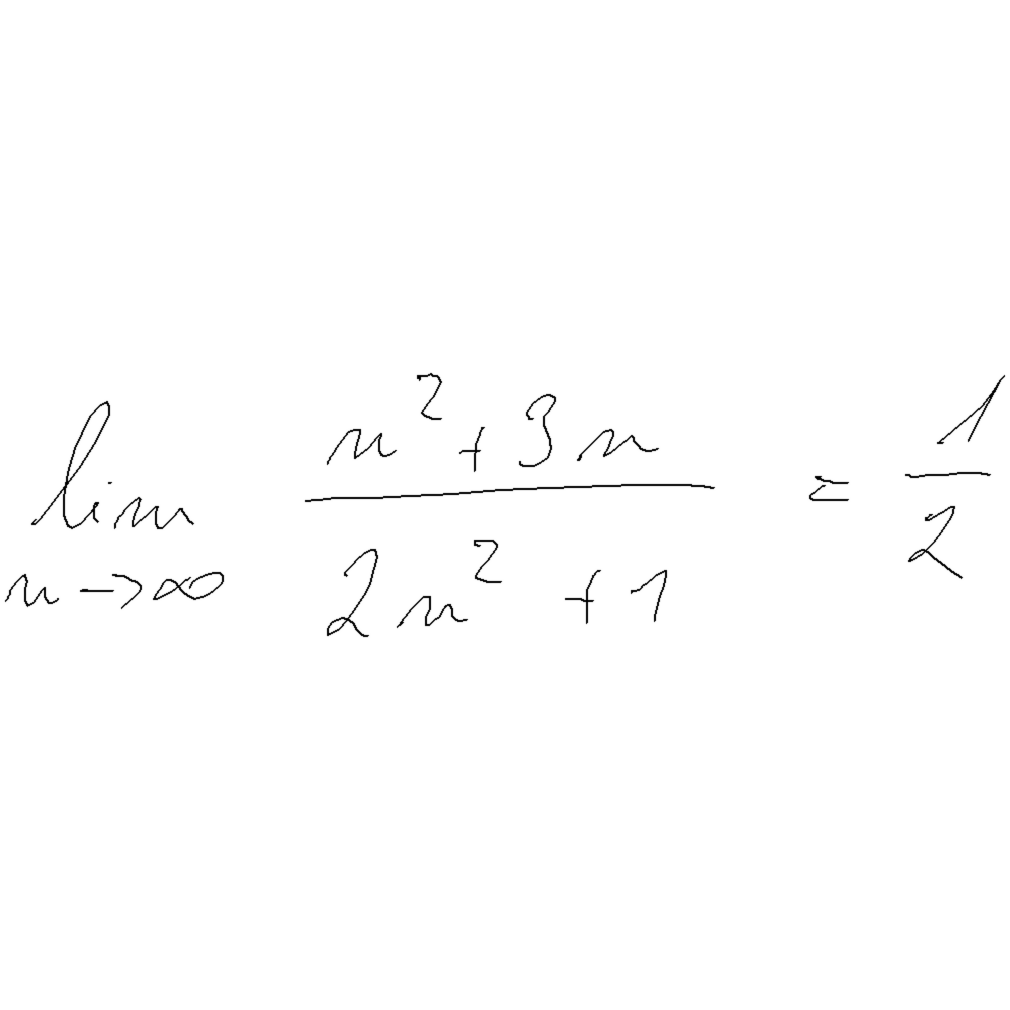 $\lim_{n \to \infty} \frac{n^2 + 3n}{2n^2 + 1} = \frac{1}{2}$